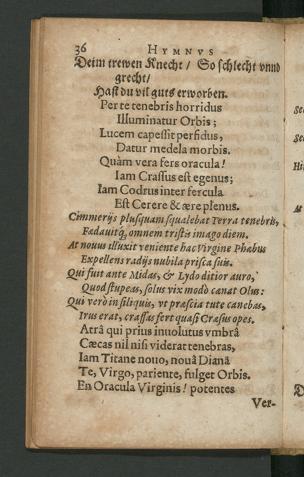 36 HYMNVS
Deim trewen Knecht / So schlecht vnnd
grecht/
Hast du vil guts erworben.
Per te tenebris horridus
Illuminatur Orbis;
Lucem capessit perfidus,
Datur medela morbis.
Quàm vera fers oracula!
Iam Crassus est egenus;
Iam Codrus inter fercula
Est Cerere & ære plenus.
Cimmerijs plusquam squalebat Terra tenebris,
Fœdavitq́; omnem tristis imago diem.
At nouus illuxit veniente hac Virgine Phœbus
Expellens radijs nubila prisca suis.
Qui fuit ante Midas, & Lydo ditior auro,
Quod stupeas, solus vix modò canat Olus:
Qui verò in siliquis, vt præscia tute canebas,
Irus erat, crassas fert quasi Crœsus opes.
Atrâ qui prius inuolutus vmbrâ
Cæcas nil nisi viderat tenebras,
Iam Titane nouo, nouâ Dianâ
Te, Virgo, pariente, fulget Orbis.
En Oracula Virginis! potentes
Ver-